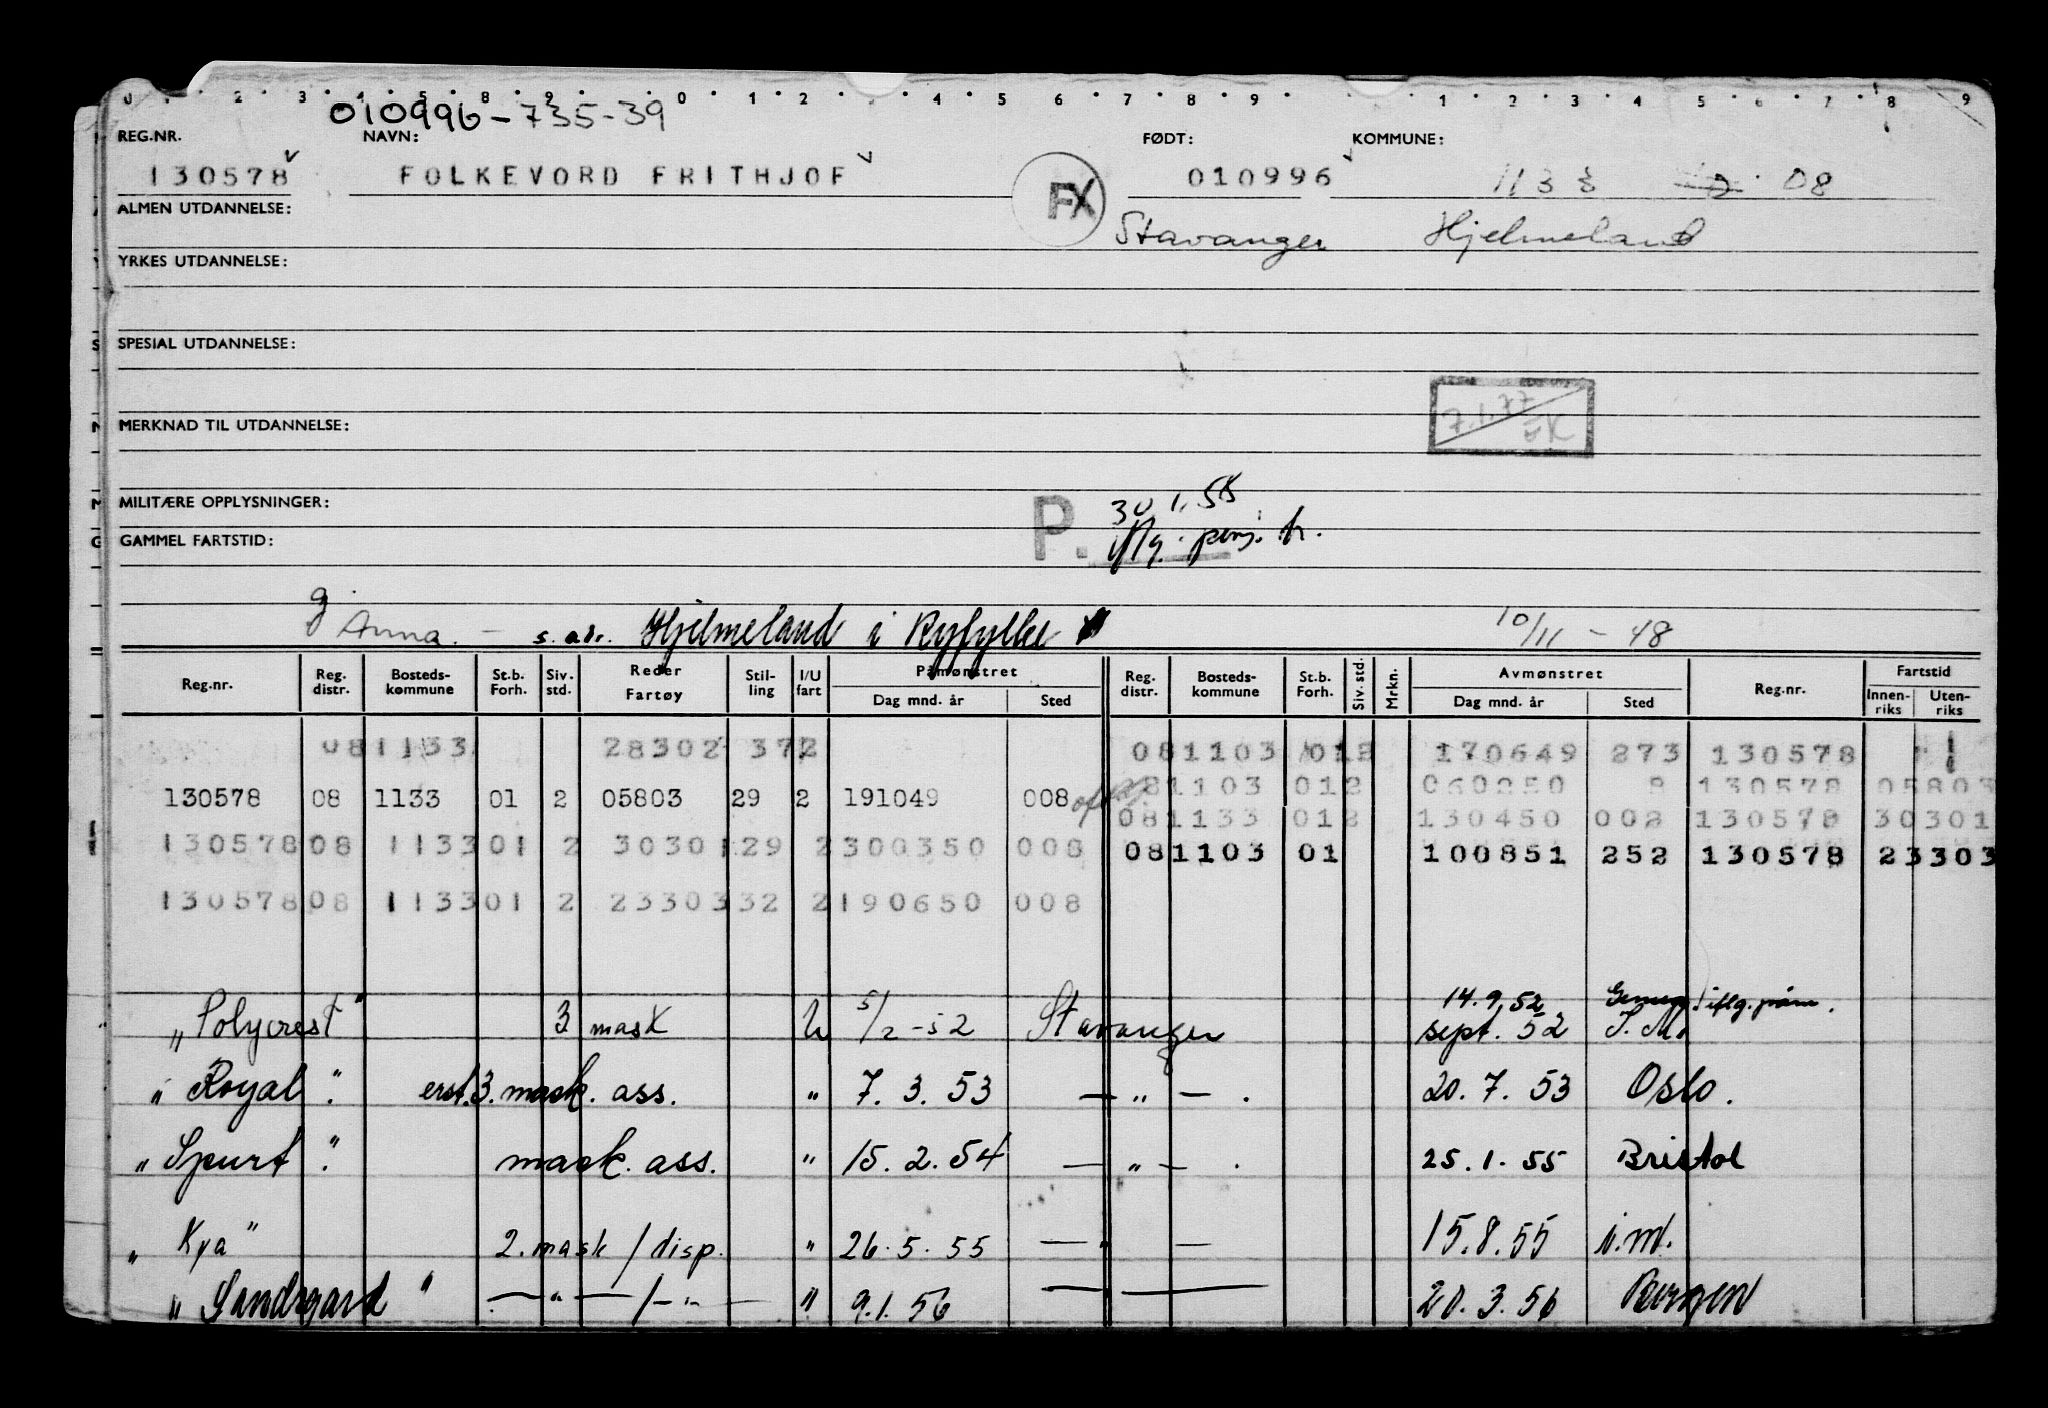 010996-735-39
REG.NR. NAVN: FØDT: KOMMUNE:
130578 FOLKEVORD FRITHJOF FX 010996 1133 08
ALMEN UTDANNELSE: Stavanger Hjelmeland
YRKES UTDANNELSE:
SPESIAL UTDANNELSE:
7.1.77
MERKNAD TIL UTDANNELSE:
MILITÆRE OPPLYSNINGER: P. 30.1.55
GAMMEL FARTSTID:
g. Anna. — s. adr. Hjelmeland i Ryfylke 10/11 - 48
Reg.nr. Reg. distr. Bosteds-kommune St.b. Forh. Siv. std. Reder Fartøy Stil-ling I/U fart Påmønstret Dag mnd. år Sted Reg. distr. Bosteds-kommune St.b. Forh. Siv. std. Mrkn. Avmønstret Dag mnd. år Sted Reg.nr. Fartstid Innen-riks Uten-riks
081133 28302 372 081103 012 170649 273 130578
130578 08 1133 01 2 05803 29 2 191049 008 81103 012 060250 8 130578 05803
081133 012 130450 008 130578 30301
130578 08 1133 01 2 30301 29 2 300350 008 081103 01 100851 252 130578 23303
130578 08 1133 01 2 23303 32 2 190650 008
14.9.52 iflg. påm.
"Polycrest" 3 mask U 5/2-52 Stavanger sept. 52 I.M.
"Royal". erst. 3. mask. ass. " 7. 3. 53 — " — . 20. 7. 53 Oslo.
"Spurt". mask. ass. " 15. 2. 54 — " — . 25. 1. 55 Bristol
"Kya" 2. mask / disp. " 26. 5. 55 — " — 15. 8. 55 i.m.
"Sandsgard" — " — / — " — " 9.1.56 — — 20. 3. 56 Bergen